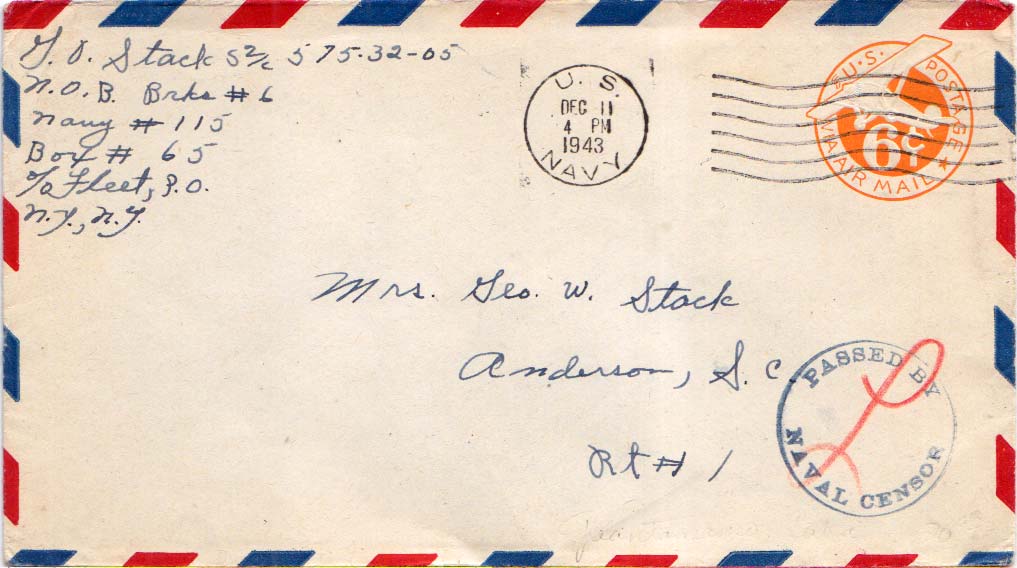 G. O. Stack S2/c 575-32-05
N.O.B. Brks # 6
Navy # 115
Box # 65
c/o Fleet, P.O.
N.Y., N.Y.
U. S.
DEC 11
4 PM
1943
NAVY
U.S. POSTAGE
6¢
VIA AIR MAIL
Mrs. Geo. W. Stack
Anderson, S. C.
Rt # 1
PASSED BY
NAVAL CENSOR